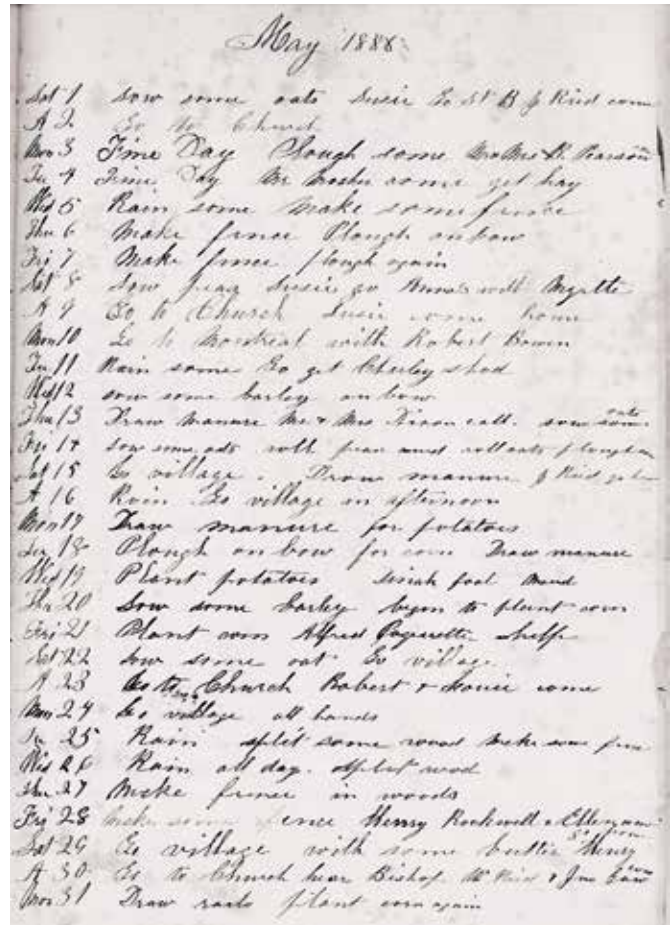 May 1888
Sat 1 sow some oats Susie Go St B J Reid come
A 2 Go to Church
Mon 3 Fine Day Plough some Mr Mrs R. Pearson
Tu 4 Fine Day Mr come get hay
Wed 5 Rain some make some fence
Thu 6 Make fence Plough on bow
Fri 7 Make fence plough again
Sat 8 Sow peas Susie go with
A 9 Go to Church Susie come home
Mon 10 Go to Montreal with Robert Bowen
Tu 11 Rain some Go get Charley shod
Wed 12 sow some barley on bow
Thu 13 Draw manure Mr & Mrs Dixon call. sow some oats
Fri 14 sow some oats roll peas and roll oats plough
Sat 15 Go village. Draw manure J Reid
A 16 Rain Go village in afternoon
Mon 17 Draw manure for potatoes
Tu 18 Plough on bow for corn Draw manure
Wed 19 Plant potatoes
Thu 20 Sow some barley began to plant corn
Fri 21 Plant corn Alfred help
Sat 22 sow some oat Go village
A 23 Go to Church Robert & come
Mon 24 Go village all hands
Tu 25 Rain split some wood make some fence
Wed 26 Rain all day. split wood
Thu 27 Make fence in woods
Fri 28 make some fence Henry Rockwell & Ellen come
Sat 29 Go village with some butter Henry
A 30 Go to Church hear Bishop W Reid & Jno come
Mon 31 Draw rails plant corn again